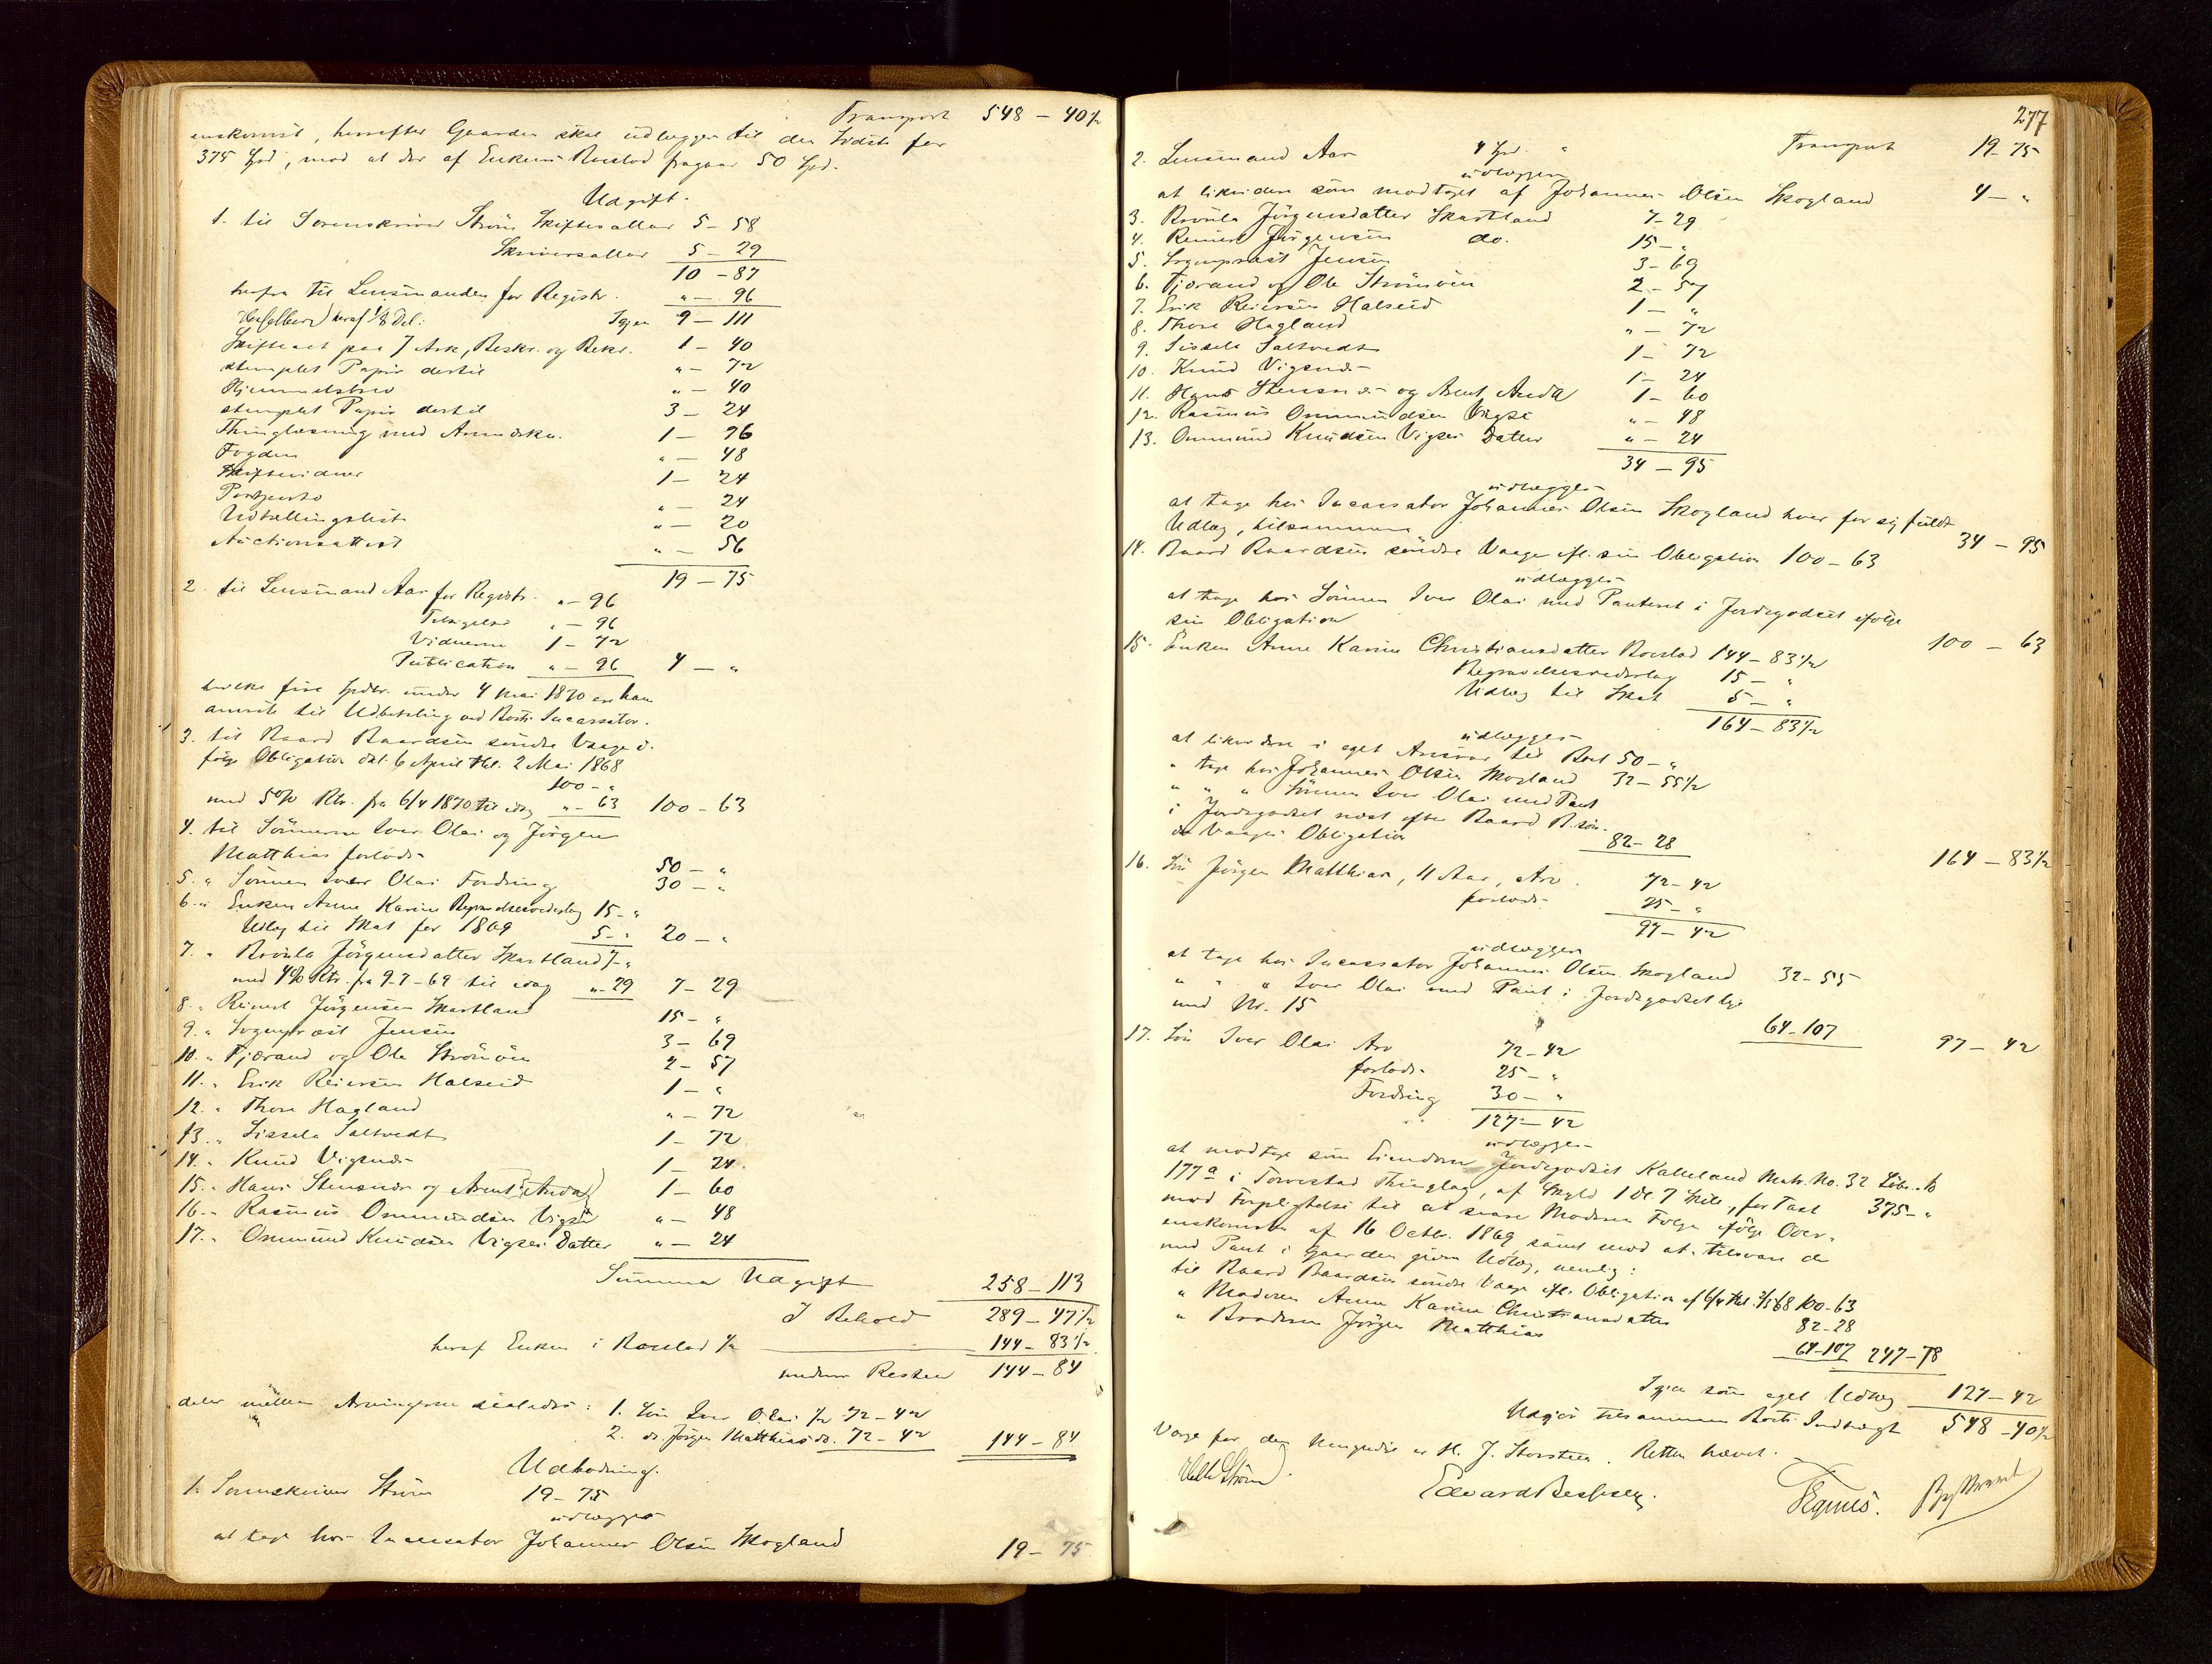 Transport 548 – 40½
enskomst, hvorefter Gaarden skal udlægges til den  for
375 Spd, mod at der af Enkens Boeslod fragaar 50 Spd.
Udgift.
1. til Sorenskriver Strøm Skiftesallar 5 – 58
Skriversallar 5 – 29
10 – 87
herfra til Lensmanden for Registr. " – 96
heraf 1/8 Del: Igjen 9 – 111
Skifteact paa 7 Ark, Beskr. og Bekr. 1 – 40
stemplet Papir dertil " – 72
Hjemmelsbrev " – 40
stemplet Papir dertil 3 – 24
Thinglæsning med Anmærkn. 1 – 76
Fogden " – 48
Skiftevidner 1 – 24
Postporto " – 24
Udtællingsliste " – 20
Auctionsattest " – 56
19 – 75
2. til Lensmand Aar for Registr. " – 96
Tilsigelse " – 96
Vidnerne 1 – 72
Publication " – 96 4 – "
hvilke fire Spdlr. under 4 Mai 1870 er ham
anviste til Udbetaling ved Boets Incassator.
3. til Baard Baardsen søndre Vaage i-
følge Obligation dat. 6 April thl. 2 Mai 1868
100 – "
med 5% Rtr. fra 6/4 1870 til idag " – 63 100 – 63
4. til Sønnerne Iver Olai og Jörgen
Matthias forlods 50 – "
5. " Sønnen Iver Olai Fordring 30 – "
6. " Enken Anne Karine Begravelsesvederlag 15 – "
Udlæg til Skat for 1869 5 – " 20 – "
7. " Brönla Jörgensdatter Skartland 7 – "
med 4% Rtr. fra 9-7-69 til idag " – 29 7 – 29
8. " Reinert Jörgensen Skartland 15 – "
9. " Sogneprest Jensen 3 – 69
10. " Tjærand og Ole Strömöen 2 – 57
11. " Erik Reiersen Halseid 1 – "
12. " Thore Hagland " – 72
13. " Sissela Saltvedt 1 – 72
14. " Knud Vigsnæs 1 – 24
15. " Hans Stensnæs og Arent Anda 1 – 60
16. " Rasmus Ommundsen Vigse " – 48
17. " Ommund Knudsen Vigses Datter " – 24
Summa Udgift 258 – 113
I Behold 289 – 47½
heraf Enken i Boeslod ½ 144 – 83½
medens Resten 144 – 84
deles mellem Arvingerne saaledes: 1. Søn Iver Olai ½ 72 – 42
2. do. Jörgen Matthias do. 72 – 42 144 – 84
Udlodning.
1. Sorenskriver Strøm 19 – 75
udlægges
at tage hos Incassator Johannes Olsen Skogland 19 – 75
277
Transport 19 – 75
2. Lensmand Aar 4 Spd. "
udlægges
at likvidere som modtaget af Johannes Olsen Skogland 4 – "
3. Brönla Jörgensdatter Skartland 7 – 29
4. Reinert Jörgensen do. 15 – "
5. Sogneprest Jensen 3 – 69
6. Tjærand og Ole Strömöen 2 – 57
7. Erik Reiersen Halseid 1 – "
8. Thore Hagland " – 72
9. Sissela Saltvedt 1 – 72
10. Knud Vigsnæs 1 – 24
11. Hans Stensnæs og Arent Anda 1 – 60
12. Rasmus Ommundsen Vigse " – 48
13. Ommund Knudsen Vigses Datter " – 24
34 – 95
udlægges
at tage hos Incassator Johannes Olsen Skogland hver for sig fuldt
Udlæg, tilsammen 34 – 95
14. Baard Baardsen søndre Vaage efl. sin Obligation 100 – 63
udlægges
at tage hos Sønnen Iver Olai med Panteret i Jordegodset ifølge
sin Obligation 100 – 63
15. Enken Anne Karine Christiansdatter Boeslod 144 – 83½
Begravelsesvederlag 15 – "
Udlæg til Skat 5 – "
164 – 83½
udlægges
at likvidere i eget Ansvar til Boet 50 – "
" tage hos Johannes Olsen Skogland 32 – 55½
" " " Sønnen Iver Olai med Pant
i Jordegodset næst efter Baard B.sön.
dr Vaages Obligation 82 – 28
164 – 83½
16. Søn Jörgen Matthias, 11 Aar, Arv 72 – 42
forlods 25 – "
97 – 42
udlægges
at tage hos Incassator Johannes Olsen Skogland 32 – 55
" " " Iver Olai med Pant i Jordegodset lige
med Nr. 15 64 – 107 97 – 42
17. Søn Iver Olai Arv 72 – 42
forlods 25 – "
Fordring 30 – "
127 – 42
udlægges
at modtage som Eiendom Jordegodset Kalleland Matr. No. 32 Löbe-No
177a i Torvestad Thinglag, af Skyld 1 Dl. 7 Skill., for Taxt 375 – "
mod Forpligtelse til at svare Moderen Folge ifølge Over-
enskomsten af 16 Octbr. 1869 samt mod at tilsvare de
med Pant i Gaarden givne Udlæg, nemlig:
til Baard Baardsen søndre Vaage efl. Obligation af 6/4 thl. 2/5 68 100 – 63
" Moderen Anne Karine Christiansdatter 82 – 28
" Broderen Jörgen Matthias 64 – 107 247 – 78
Igjen som eget Udlæg 127 – 42
Udgjør tilsammen Boets Indtægt 548 – 40½
Værge for den Umyndige er H. J. Storsteen. Retten hævet.
Strøm. Edvard .